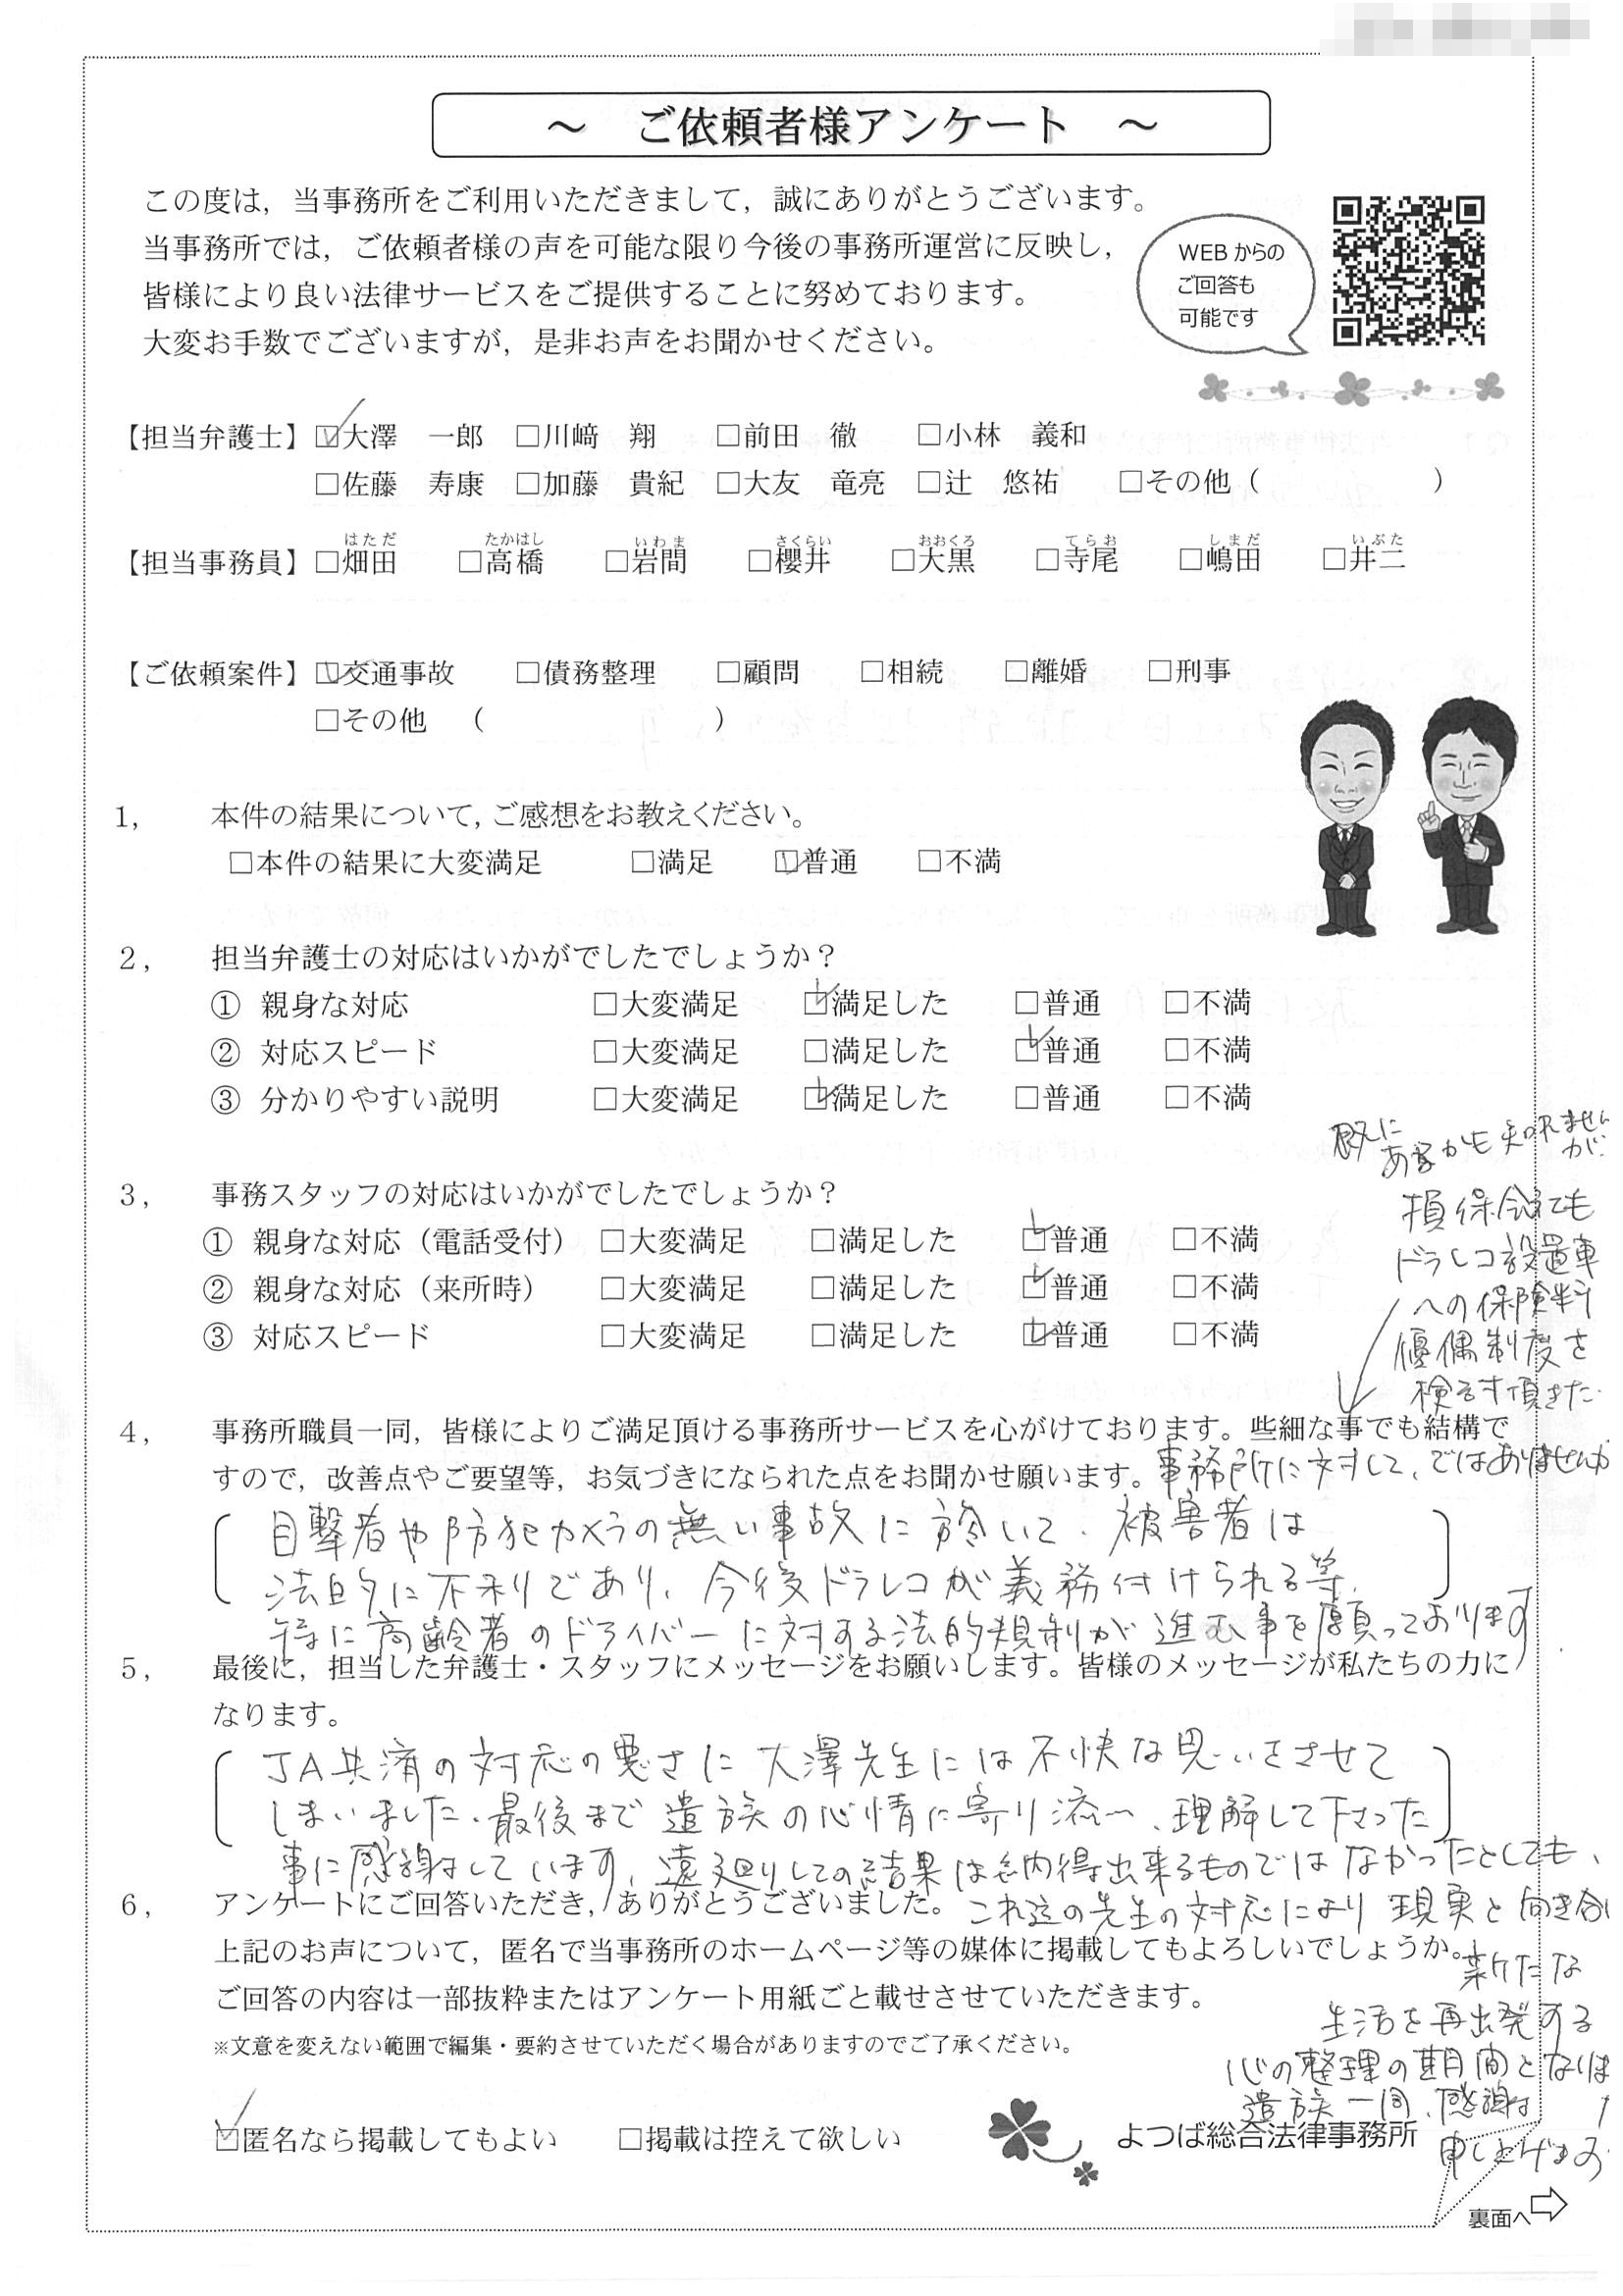 ～　ご依頼者様アンケート　～
この度は，当事務所をご利用いただきまして，誠にありがとうございます。
当事務所では，ご依頼者様の声を可能な限り今後の事務所運営に反映し，
皆様により良い法律サービスをご提供することに努めております。
大変お手数でございますが，是非お声をお聞かせください。
WEBからの
ご回答も
可能です
【担当弁護士】☑大澤　一郎　□川﨑　翔　□前田　徹　□小林　義和
□佐藤　寿康　□加藤　貴紀　□大友　竜亮　□辻　悠祐　□その他（　　　　　　）
はただ　たかはし　いわま　さくらい　おおくろ　てらお　しまだ　いぶた
【担当事務員】□畑田　□高橋　□岩間　□櫻井　□大黒　□寺尾　□嶋田　□井二
【ご依頼案件】☑交通事故　□債務整理　□顧問　□相続　□離婚　□刑事
□その他　（　　　　　　　　）
1，　本件の結果について，ご感想をお教えください。
□本件の結果に大変満足　□満足　☑普通　□不満
2，　担当弁護士の対応はいかがでしたでしょうか？
① 親身な対応　□大変満足　☑満足した　□普通　□不満
② 対応スピード　□大変満足　□満足した　☑普通　□不満
③ 分かりやすい説明　□大変満足　☑満足した　□普通　□不満
3，　事務スタッフの対応はいかがでしたでしょうか？
① 親身な対応（電話受付）　□大変満足　□満足した　☑普通　□不満
② 親身な対応（来所時）　□大変満足　□満足した　☑普通　□不満
③ 対応スピード　□大変満足　□満足した　☑普通　□不満
既に
あるかも知れません
が、
損保会社でも
ドラレコ設置車
への保険料
優偶制度を
検討頂きた
4，　事務所職員一同，皆様によりご満足頂ける事務所サービスを心がけております。些細な事でも結構で
すので，改善点やご要望等，お気づきになられた点をお聞かせ願います。事務所に対して、ではありませんが
目撃者や防犯カメラの無い事故に於いて、被害者は
法的に不利であり、今後ドラレコが義務付けられる等、
特に高齢者のドライバーに対する法的規制が進む事を願っております
5，　最後に，担当した弁護士・スタッフにメッセージをお願いします。皆様のメッセージが私たちの力に
なります。
JA共済の対応の悪さに大澤先生には不快な思いをさせて
しまいました、最後まで遺族の心情に寄り添い、理解して下さった
事に感謝しています、遠廻りしての結果は納得出来るものではなかったとしても、
6，　アンケートにご回答いただき，ありがとうございました。これ迄の先生の対応により現実と向き合い
上記のお声について，匿名で当事務所のホームページ等の媒体に掲載してもよろしいでしょうか。新たな
ご回答の内容は一部抜粋またはアンケート用紙ごと載せさせていただきます。
生活を再出発する
※文意を変えない範囲で編集・要約させていただく場合がありますのでご了承ください。
心の整理の期間となりま
遺族一同、感謝
申し上げます
☑匿名なら掲載してもよい　□掲載は控えて欲しい　よつば総合法律事務所
裏面へ